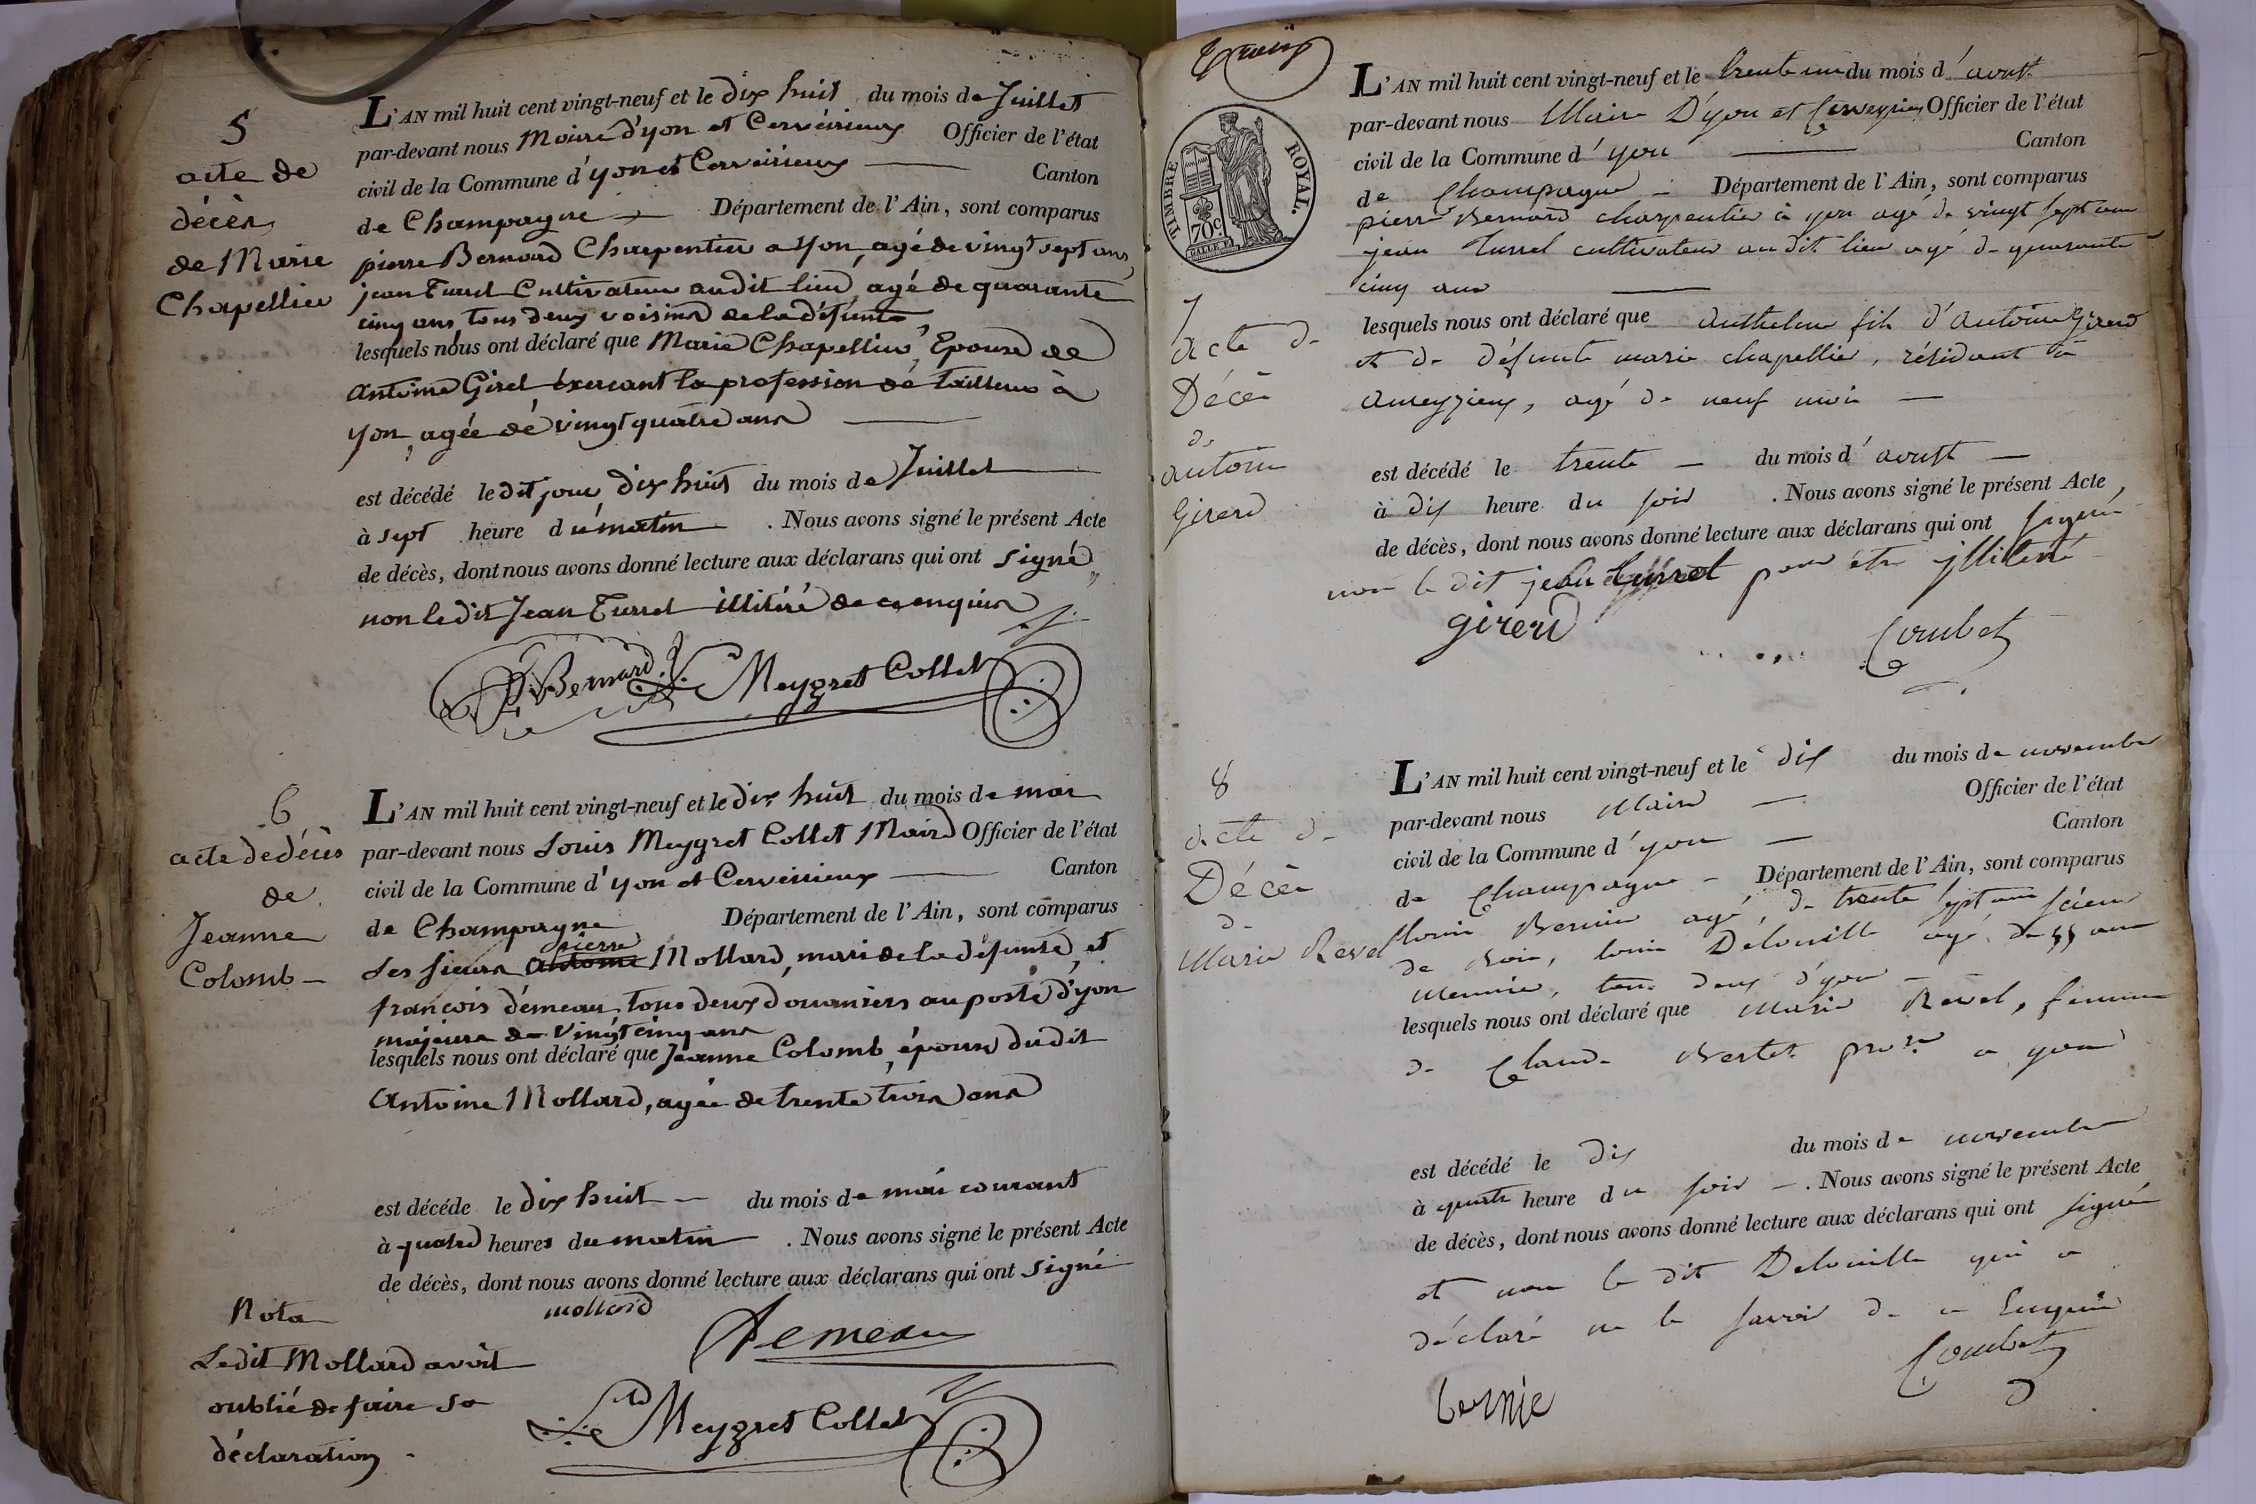 5
acte de
décès
de Marie
Chapellier
L'AN mil huit cent vingt-neuf et le dix huit du mois de Juillet
par-devant nous Maire d'yon et Cerveirieux Officier de l'état
civil de la Commune d'yon et Cerveirieux Canton
de Champagne Département de l'Ain, sont comparus
pierre Bernard Charpentier a Yon, agé de vingt sept ans,
jean Turrel Cultivateur audit lieu, agé de quarante
cinq ans, tous deux voisins de la défunte
lesquels nous ont déclaré que Marie Chapellier, Epouse de
Antoine Girel éxercant la profession dé tailleur à
yon, agée dé vingt quatre ans
est décédé le dit jour dix huit du mois de Juillet
à sept heure du matin . Nous avons signé le présent Acte
de décès, dont nous avons donné lecture aux déclarans qui ont signé,
non le dit Jean Turrel illitéré de ce enquis
P. Bernard Meygret Collet
6
acte de décès
de
Jeanne
Colomb
L'AN mil huit cent vingt-neuf et le dix huit du mois de mai
par-devant nous Louis Meygret Collet Maire Officier de l'état
civil de la Commune d'yon et Cerveirieux Canton
de Champagne Département de l'Ain, sont comparus
pierre
Les sieurs antoine Mollard, mari de la défunte, et
françois démeau, tous deux douaniers au poste d'yon
majeurs de vingt cinq ans
lesquels nous ont déclaré que Jeanne Colomb, épouse dudit
Antoine Mollard, agée de trente trois ans
est décéde le dix huit du mois de mai courant
à quatre heures du matin . Nous avons signé le présent Acte
de décès, dont nous avons donné lecture aux déclarans qui ont signé
mollard
Demeau
Meygret Collet
Nota
Ledit Mollard avoit
oublié de faire sa
déclaration
TIMBRE ROYAL.
70c
7
acte de
Décès
de
antoine
Girerd
L'AN mil huit cent vingt-neuf et le trente un du mois d'aoust
par-devant nous Maire D'yon et Cerveyrieu Officier de l'état
civil de la Commune d'yon Canton
de Champagne Département de l'Ain, sont comparus
pierre Bernard charpentier à yon agé de vingt sept ans
jean turrel cultivateur au dit lieu agé de quarante
cinq ans
lesquels nous ont déclaré que anthelme fils d'antoine Girerd
et de défunte marie chapellier, résidant à
ameyzieu, agé de neuf mois
est décédé le trente du mois d'aoust
à dix heure du soir . Nous avons signé le présent Acte
de décès, dont nous avons donné lecture aux déclarans qui ont signé
non le dit jean turrel pour être illiteré
girerd
Coubet
8
acte de
Décès
de
Marie Revel
L'AN mil huit cent vingt-neuf et le dix du mois de novembre
par-devant nous Maire Officier de l'état
civil de la Commune d'yon Canton
de Champagne Département de l'Ain, sont comparus
Louis Bernin agé, de trente sept ans scieur
de bois, louis Delouille agé de 55 ans
meunier, tous deux d'yon
lesquels nous ont déclaré que Marie Revel, femme
de Claude Bertet a yon
est décédé le dix du mois de novembre
à quatre heure du soir . Nous avons signé le présent Acte
de décès, dont nous avons donné lecture aux déclarans qui ont signé
et non le dit Delouille qui a
déclaré ne le savoir de ce Enquis
Coubet
bernie